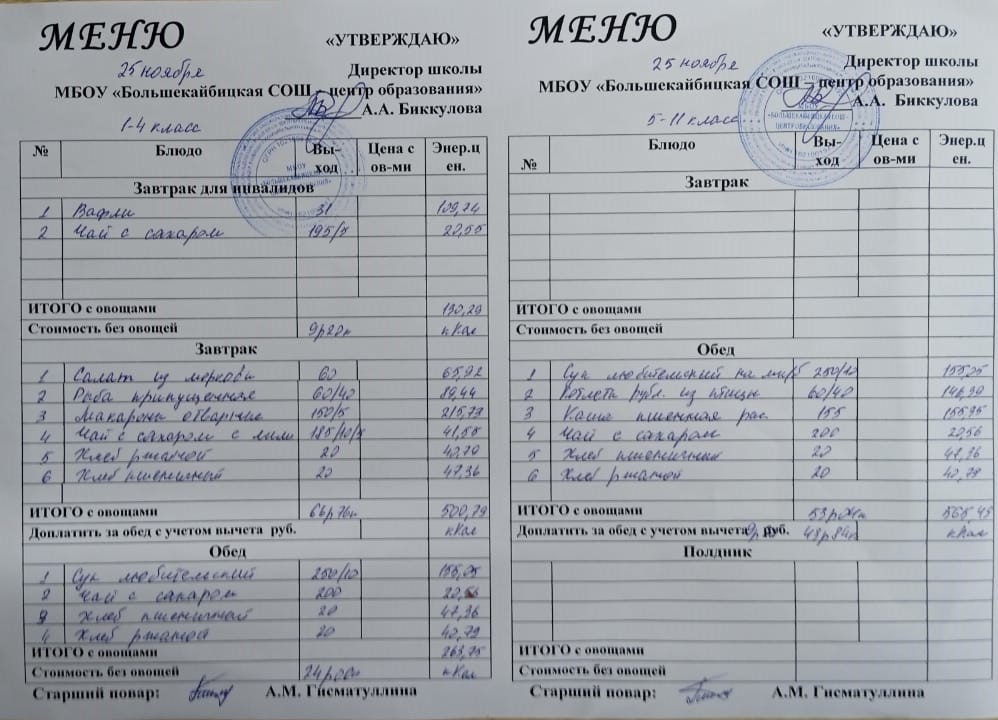 МЕНЮ
«УТВЕРЖДАЮ»
25 ноября
Директор школы
МБОУ «Большекайбицкая СОШ – центр образования»
А.А. Биккулова
1-4 класс
№ Блюдо Вы-ход Цена с ов-ми Энер.цен.
Завтрак для инвалидов
1 Вафли 31 109,74
2 Чай с сахаром 195/5 20,55
ИТОГО с овощами 130,29
Стоимость без овощей 9р20к кКал
Завтрак
1 Салат из моркови 60 65,92
2 Рыба припущенная 60/40 89,44
3 Макароны отварные 150/5 215,73
4 Чай с сахаром с лимо 185/10/5 41,55
5 Хлеб ржаной 20 40,79
6 Хлеб пшеничный 20 47,36
ИТОГО с овощами 66р76к 500,79
Доплатить за обед с учетом вычета руб. кКал
Обед
1 Суп любительский 250/10 155,05
2 Чай с сахаром 200 20,56
3 Хлеб пшеничный 20 47,36
4 Хлеб ржаной 20 40,79
ИТОГО с овощами 263,75
Стоимость без овощей кКал
Старший повар: А.М. Гисматуллина
МЕНЮ
«УТВЕРЖДАЮ»
25 ноября
Директор школы
МБОУ «Большекайбицкая СОШ – центр образования»
А.А. Биккулова
5-11 класс
№ Блюдо Вы-ход Цена с ов-ми Энер.цен.
Завтрак
ИТОГО с овощами
Стоимость без овощей
Обед
1 Суп любительский на 250/10 155,05
2 Котлета рубл. из птицы 60/40 146,99
3 Каша пшенная рас. 155 155,95
4 Чай с сахаром 200 20,56
5 Хлеб пшеничный 20 47,36
6 Хлеб ржаной 20 40,79
ИТОГО с овощами 565,49
Доплатить за обед с учетом вычета руб. 43р84к кКал
Полдник
ИТОГО с овощами
Стоимость без овощей
Старший повар: А.М. Гисматуллина